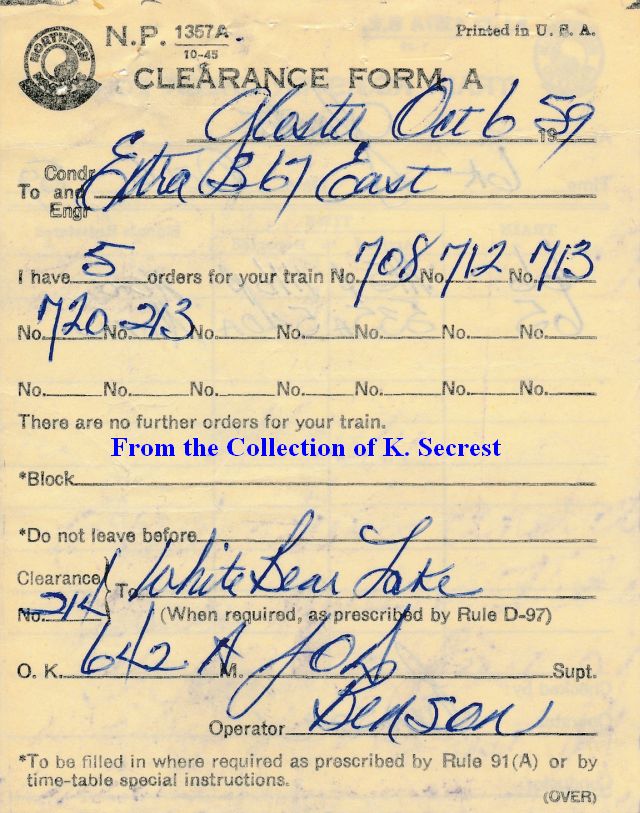 NORTHERN PACIFIC
N.P. 1357A
10-45
Printed in U. S. A.
CLEARANCE FORM A
Gloster Oct 6 1959
Condr
To and Extra B 67 East
Engr
I have 5 orders for your train No. 708 No. 712 No. 713
No. 720 No. 213 No. No. No. No. No.
No. No. No. No. No. No. No.
There are no further orders for your train.
From the Collection of K. Secrest
*Block
*Do not leave before
Clearance To White Bear Lake
No. 214 (When required, as prescribed by Rule D-97)
O. K. 642 A M. Supt.
Operator Benson
*To be filled in where required as prescribed by Rule 91(A) or by
time-table special instructions.
(OVER)